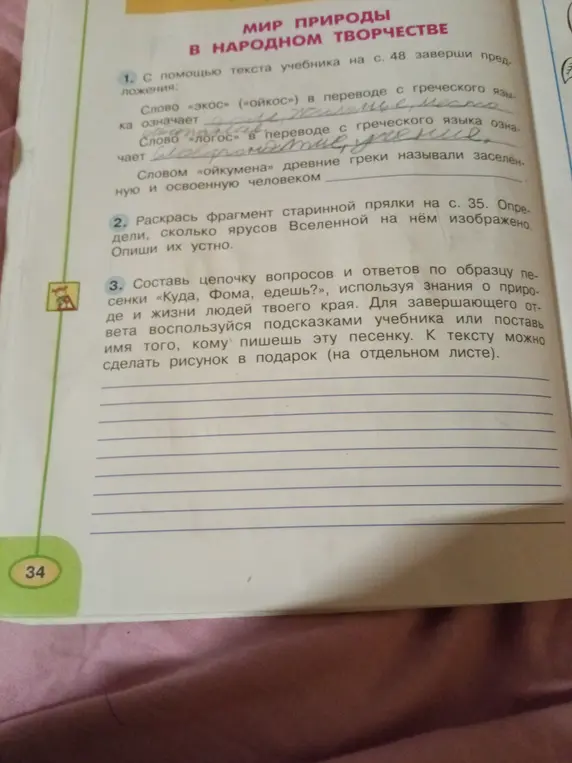 МИР ПРИРОДЫ
В НАРОДНОМ ТВОРЧЕСТВЕ
1. С помощью текста учебника на с. 48 заверши пред-
ложения:
Слово «экос» («ойкос») в переводе с греческого язы-
ка означает дом, жилище, место
обитания
Слово «логос» в переводе с греческого языка озна-
чает слово, понятие, учение.
Словом "ойкумена" древние греки называли заселён-
ную и освоенную человеком
2. Раскрась фрагмент старинной прялки на с. 35. Опре-
дели, сколько ярусов Вселенной на нём изображено.
Опиши их устно.
3. Составь цепочку вопросов и ответов по образцу пе-
сенки «Куда, Фома, едешь?», используя знания о приро-
де и жизни людей твоего края. Для завершающего от-
вета воспользуйся подсказками учебника или поставь
имя того, кому пишешь эту песенку. К тексту можно
сделать рисунок в подарок (на отдельном листе).
34